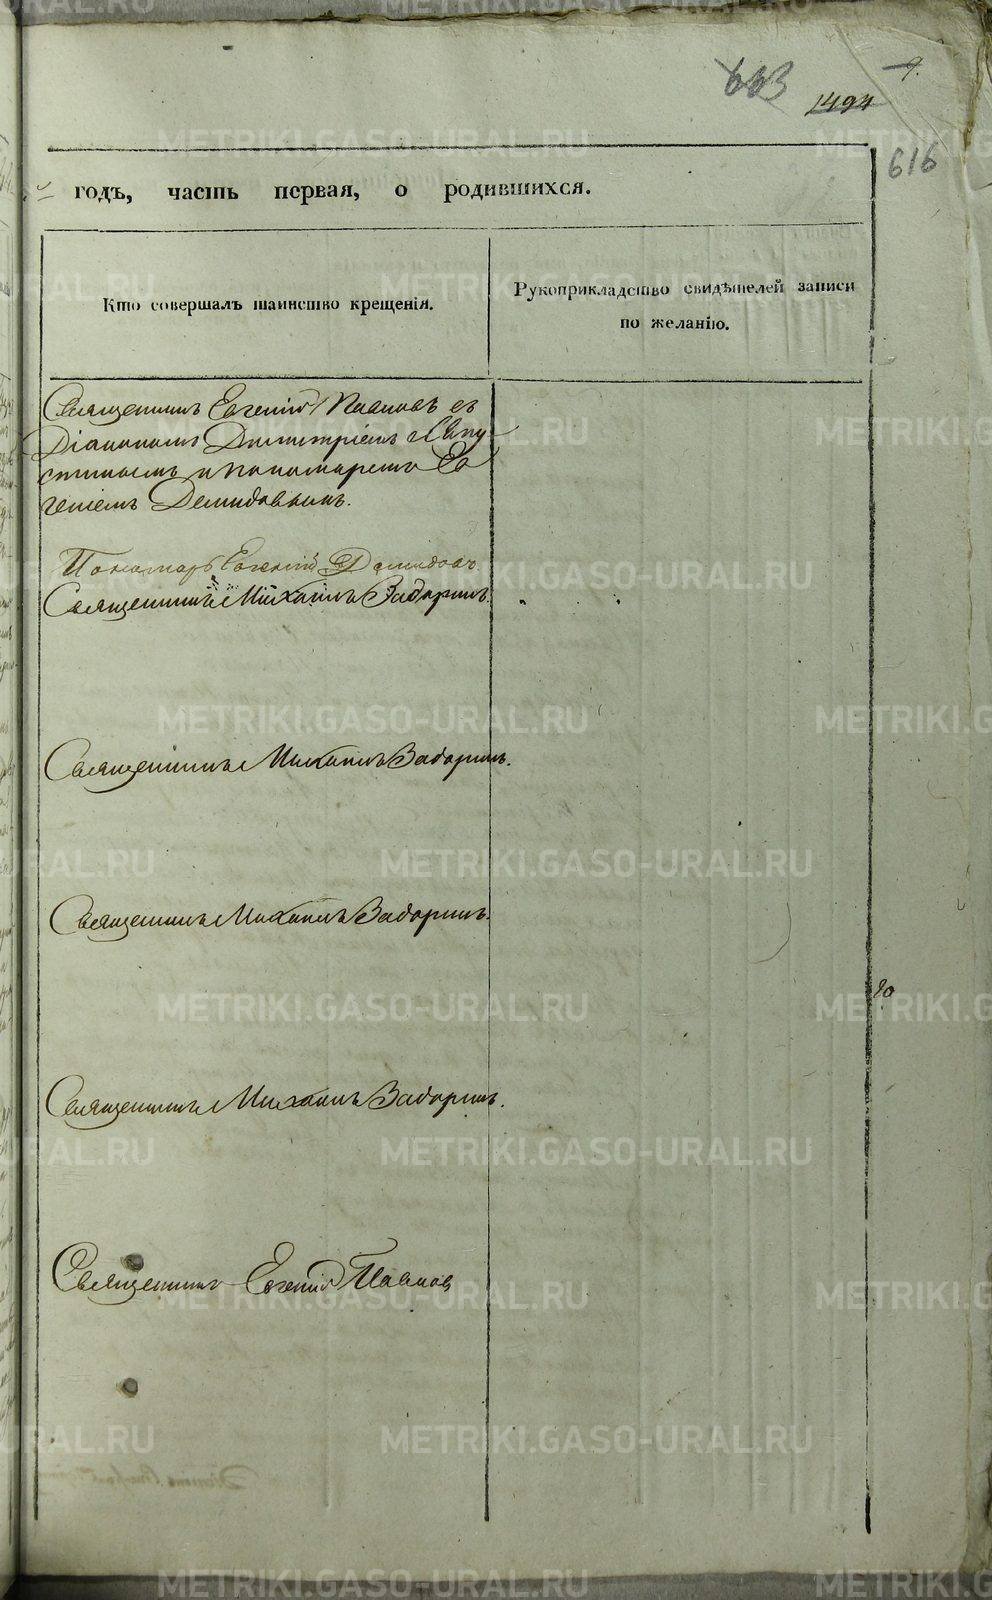 9.
663
1494
616
годъ, часть первая, о родившихся.
Кто совершалъ таинство крещенія.
Рукоприкладство свидѣтелей записи
по желанію.
Священникъ Евгеній Поповъ съ
Діакономъ Димитріемъ
и пономаремъ Ев
геніемъ Демидовымъ.
Пономарь Евгеній Демидовъ
Священникъ Михаилъ Задоринъ.
Священникъ Михаилъ Задоринъ.
Священникъ Михаилъ Задоринъ.
Священникъ Михаилъ Задоринъ.
Священникъ Евгеній Поповъ
METRIKI.GASO-URAL.RU